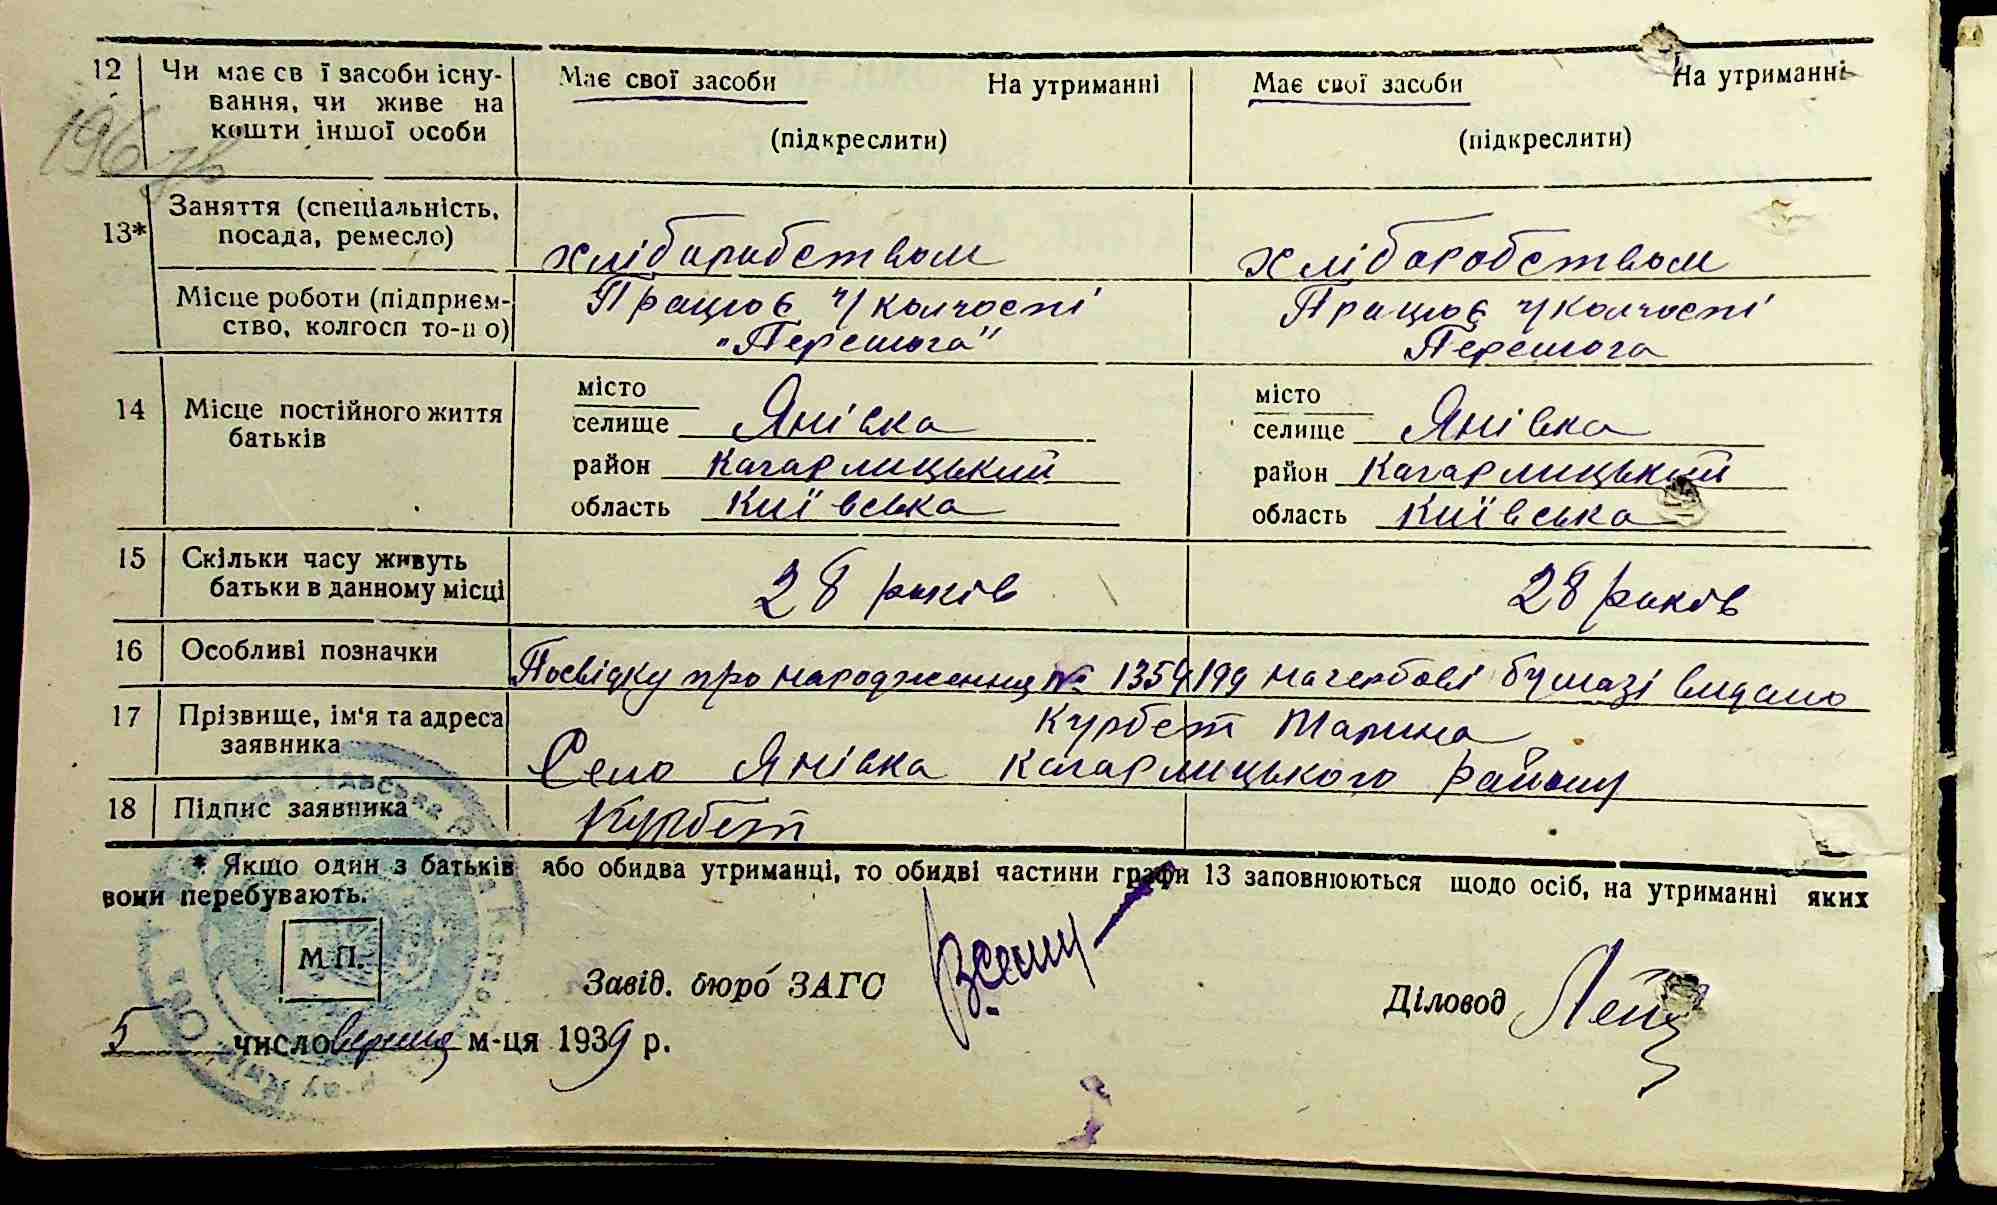 12 Чи має св ї засоби існу- Має свої засоби На утриманні Має свої засоби На утриманні
вання, чи живе на
кошти іншої особи (підкреслити) (підкреслити)
196 зв
Заняття (спеціальність,
13* посада, ремесло) хліборобством хліборобством
Місце роботи (підприєм- Працює у колгоспі Працює у колгоспі
ство, колгосп то-що) „Перемога" Перемога
місто місто
14 Місце постійного життя селище Янівка селище Янівка
батьків район Кагарлицький район Кагарлицький
область Київська область Київська
15 Скільки часу живуть
батьки в данному місці 28 років 28 років
16 Особливі позначки Посвідку про народження № 1354199 на гербові бумазі видано
17 Прізвище, ім'я та адреса Курбет Марина
заявника Село Янівка Кагарлицького району
18 Підпис заявника Курбет
* Якщо один з батьків або обидва утриманці, то обидві частини графи 13 заповнюються щодо осіб, на утриманні яких
вони перебувають.
М.П.
Завід. бюро ЗАГС Діловод
5 число вересня м-ця 1939 р.